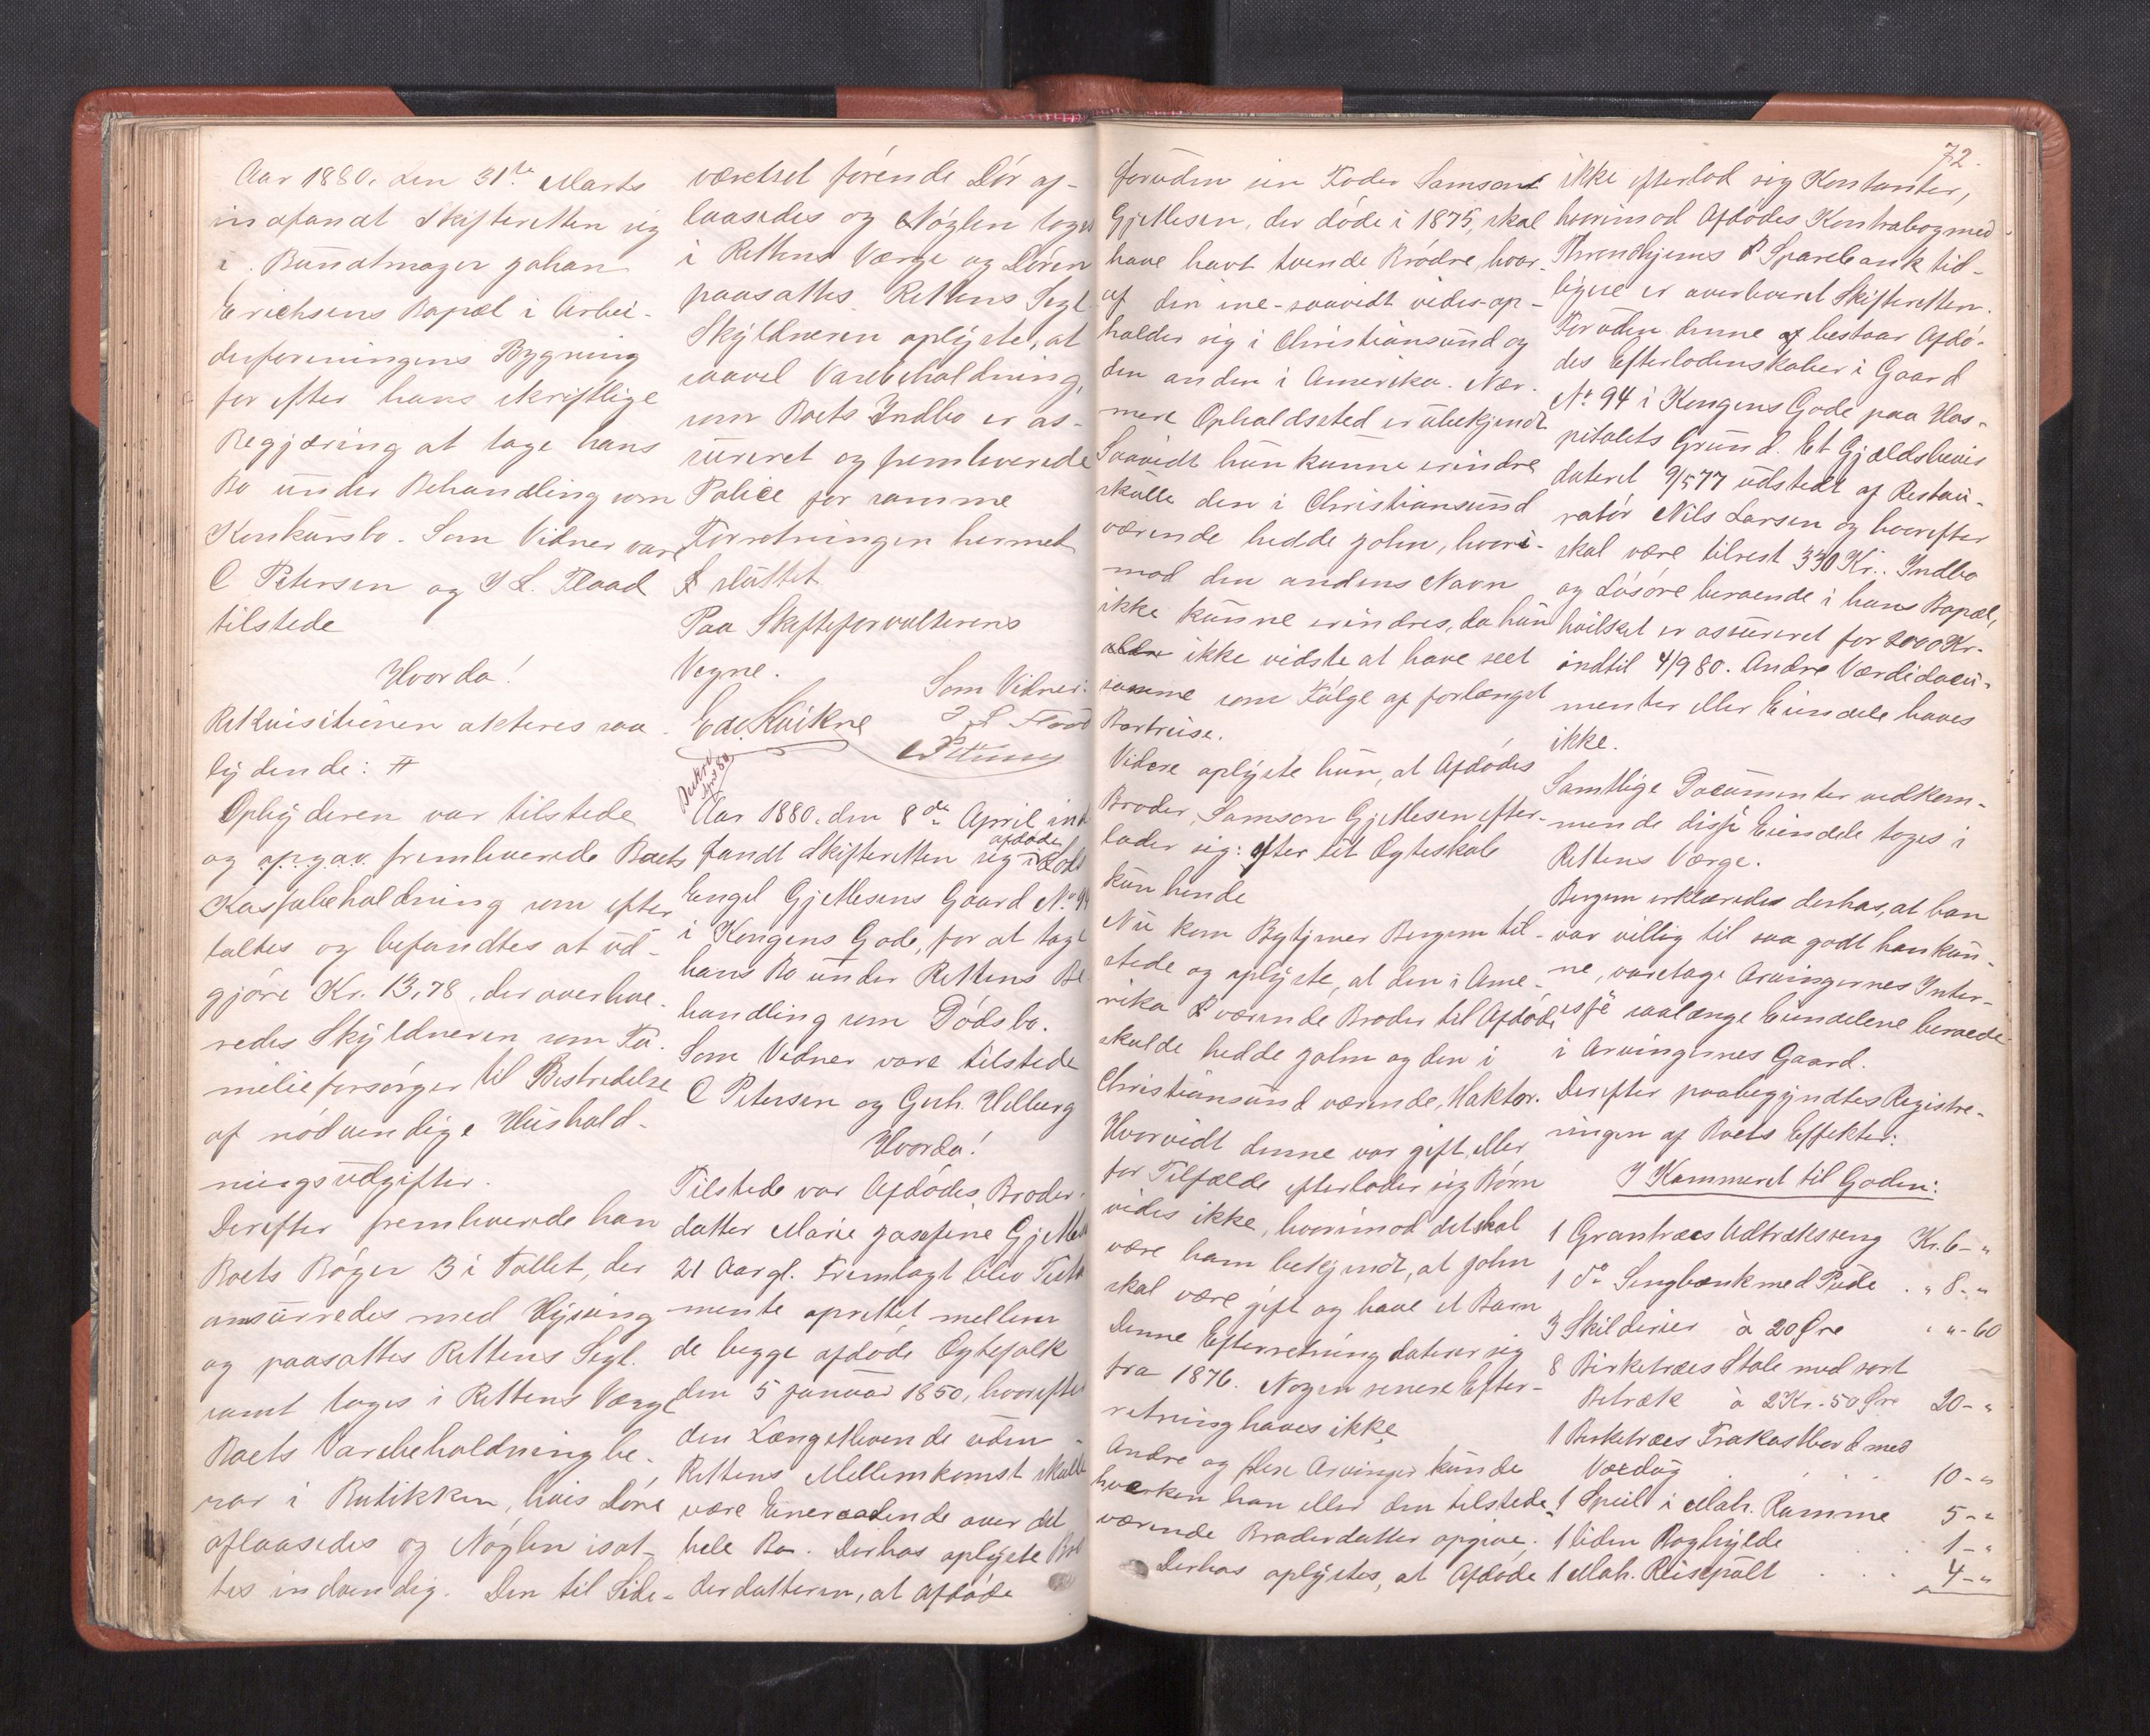 Aar 1880. den 31te Marts
indfandt Skifteretten sig
i Bundtmager Johan
Erichsens Bopæl i Arbei-
derforeningens Bygning
for efter hans skriftlige
Begjæring at tage hans
Bo under Behandling som
Konkursbo. Som Vidner vare
C Petersen og I L. Flood
tilstede
Hvorda!
Rekvisitionen akteres saa
lydende: #
Opbyderen var tilstede
og opgav fremleverede Boets
Kassabeholdning som efter
taltes og befandtes at ud-
gjøre Kr. 13,78, der overleve-
redes Skyldneren som Fa-
milieforsørger til Bestridelse
af nødvendige Hushold-
ningsudgifter.
Derefter fremleverede han
Boets Bøger 3 i Tallet, der
omsurredes med Hysing
og paasattes Rettens Segl.
samt toges i Rettens Værge
Boets Varebeholdning be-
ror i Butikken, hvis Døre
aflaasedes og Nøglen isat-
tes indvendig. Den til Side-
værelset førende Dør af-
laasedes og Nøglen toges
i Rettens Værge og Døren
paasattes Rettens Segl
Skyldneren oplyste, at
saavel Varebeholdning,
som Boets Indbo er as-
sureret og fremleverede
Police for samme
Forretningen hermed
sluttet
Paa Skifteforvalterens
Vegne.
Som Vidner:
Edv. Kvikne
I L Flood
C Petersen
Aar 1880. den 8de April ind
fandt Skifteretten sig i afdøde
Engel Gjetlesens Gaard No 94
i Kongens Gade, for at tage
hans Bo under Rettens Be
handling som Dødsbo.
Som Vidner vare tilstede
C Petersen og Gerh. Helberg
Hvorda!
Tilstede var Afdødes Broder-
datter Marie Josefine Gjetlesen
21 Aar gl. Fremlagt blev Testa
mente oprettet mellem
de begge afdøde Ægtefolk
den 5 Januar 1850, hvorefter
den Længstlevende uden
Rettens Mellemkomst skulle
være Eneraadende over det
hele Bo. Derhos oplyste Bro
derdatteren, at Afdøde
72.
foruden sin Fader Samson
Gjetlesen, der døde i 1875, skal
have havt tvende Brødre, hvor-
af den ene - saavidt vides - op-
holder sig i Christiansund og
den anden i Amerika. Nær-
mere Opholdssted er ubekjendt
Saavidt hun kunne erindre
skulle den i Christiansund
værende hedde John, hvori-
mod den andens Navn
ikke kunne erindres, da hun
ikke vidste at have seet
samme som Følge af forlænget
Bortreise.
Videre oplyste hun, at Afdødes
Broder, Samson Gjetlesen efter-
lader sig: efter sit Ægteskab
kun hende
Nu kom Bytjener Bergem til-
stede og oplyste, at den i Ame-
rika værende Broder til Afdøde
skulde hedde John og den i
Christiansund værende, Haktor.
Hvorvidt denne var gift, eller
for Tilfælde efterlader sig Børn
vides ikke, hvorimod det skal
være ham bekjendt, at John
skal være gift og have et Barn
Denne Efterretning daterer sig
fra 1876. Nogen senere Efter-
retning haves ikke
Andre og flere Arvinger kunde
hverken han eller den tilstede-
værende Broderdatter opgive.
Derhos oplystes, at Afdøde
ikke efterlod sig Kontanter,
hvorimod Afdødes Kontrabog med
Throndhjems Sparebank tid-
ligere er overleveret Skifteretten.
Foruden denne bestaar Afdø-
des Efterladenskaber i Gaard
No 94 i Kongens Gade paa Hos-
pitalets Grund. Et Gjældsbevis
dateret 9/5 77 udstedt af Restau-
ratør Nils Larsen og hvorefter
skal være tilrest 330 Kr.. Indbo
og Løsøre beroende i hans Bopæl,
hvilket er assureret for 2000 Kr.
indtil 4/9 80. Andre Værdidocu-
menter eller Eiendele haves
ikke.
Samtlige Documenter vedkom-
mende disse Eiendele toges i
Rettens Værge.
Bergem erklæredes derhos, at han
var villig til saa godt han kun-
ne, varetage Arvingernes Inter-
esse saalænge Eiendelene beroede
i Arvingernes Gaard.
Derefter paabegyndtes Registre-
ringen af Boets Effekter:
I Kammeret til Gaden:
1 Grantræes Udtrækseng Kr. 6 - "
1 do Sengbænk med Pude . " 8 - "
3 Skilderier à 20 Øre " " - 60
8 Birketræes Stole med sort
Betræk à 2 Kr. 50 Øre 20 - "
1 Birketræes Frokostbord med
Voxdug . . . 10 - "
1 Speil i Mah. Ramme 5 - "
1 liden Boghylde . . . 1 - "
1 Mah. Reisepult . . . 4 - "